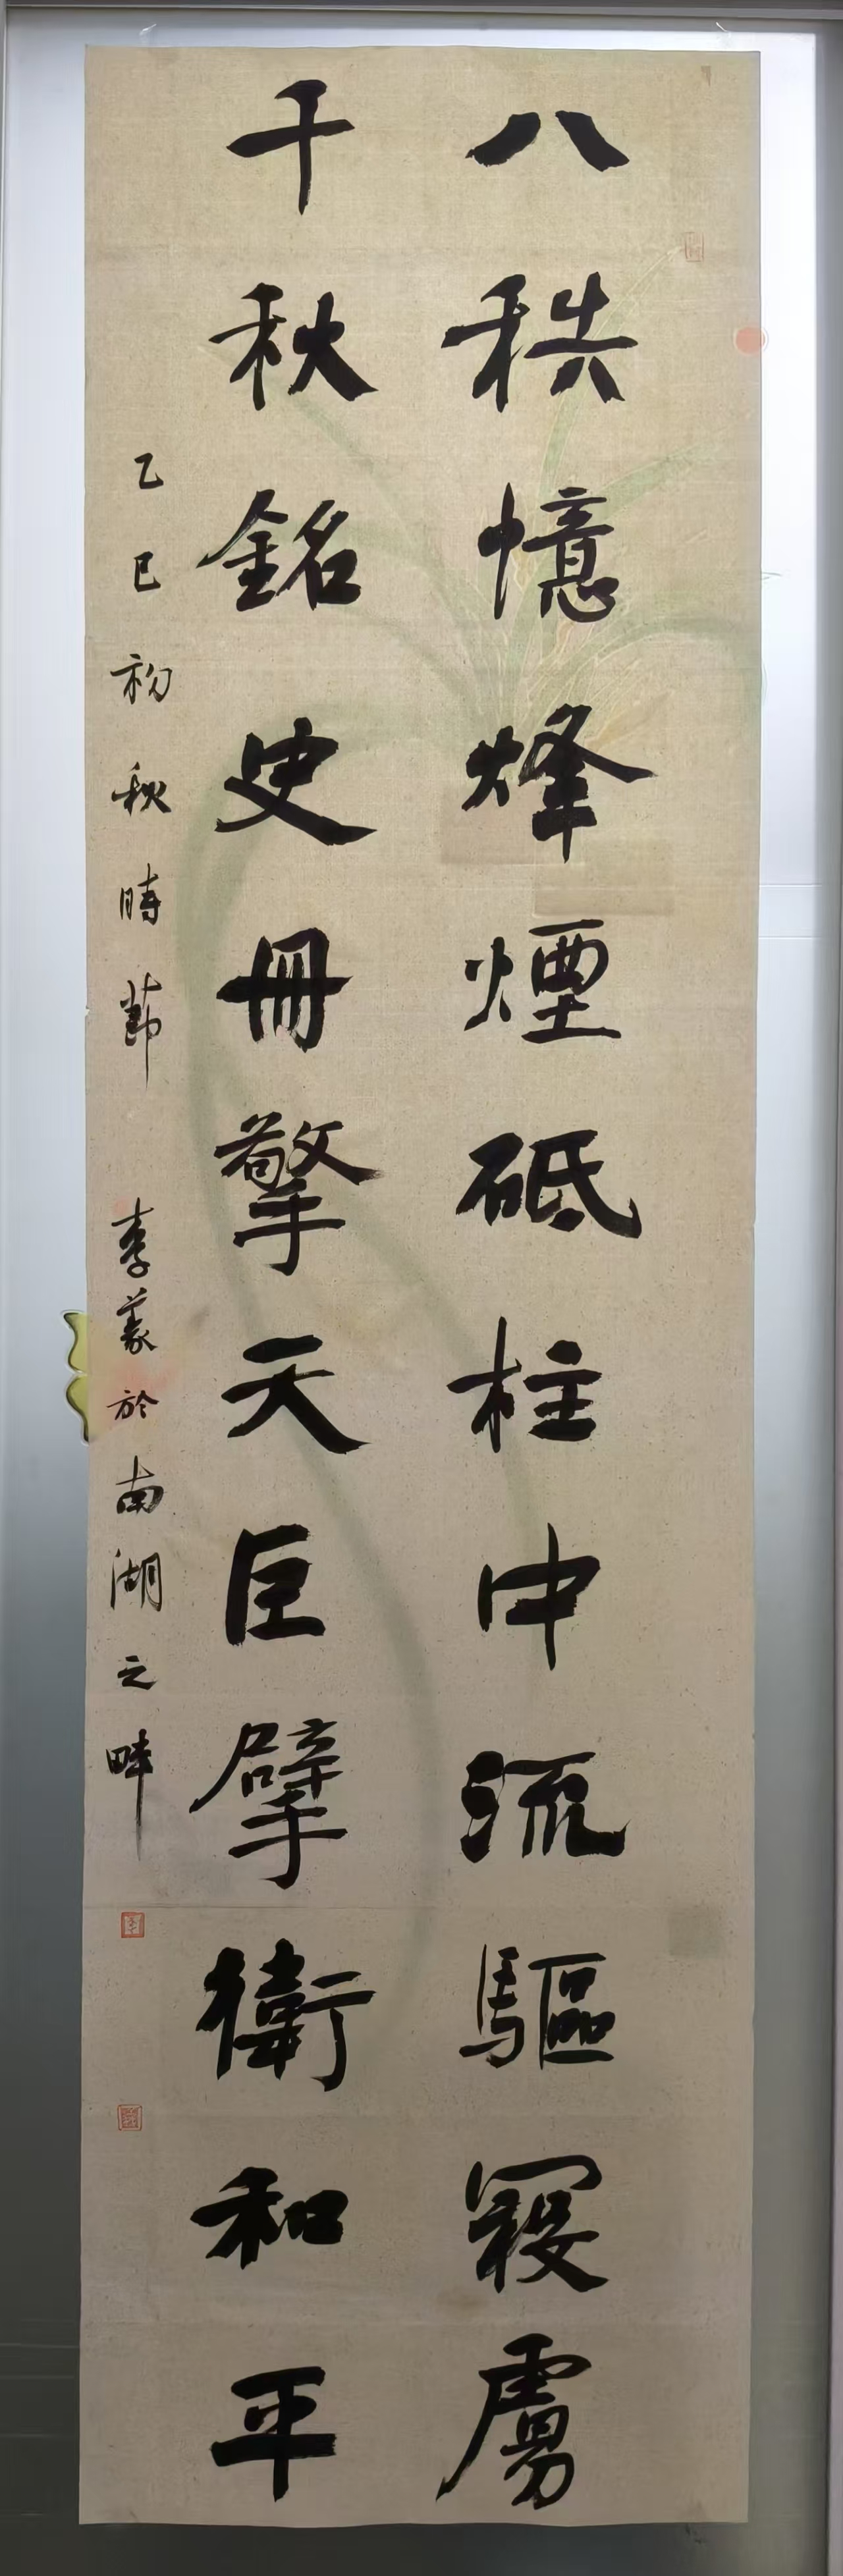 八秩憶烽煙砥柱中流驅寇虜
千秋銘史冊擎天巨擘衛和平
乙巳初秋時節 李義於南湖之畔